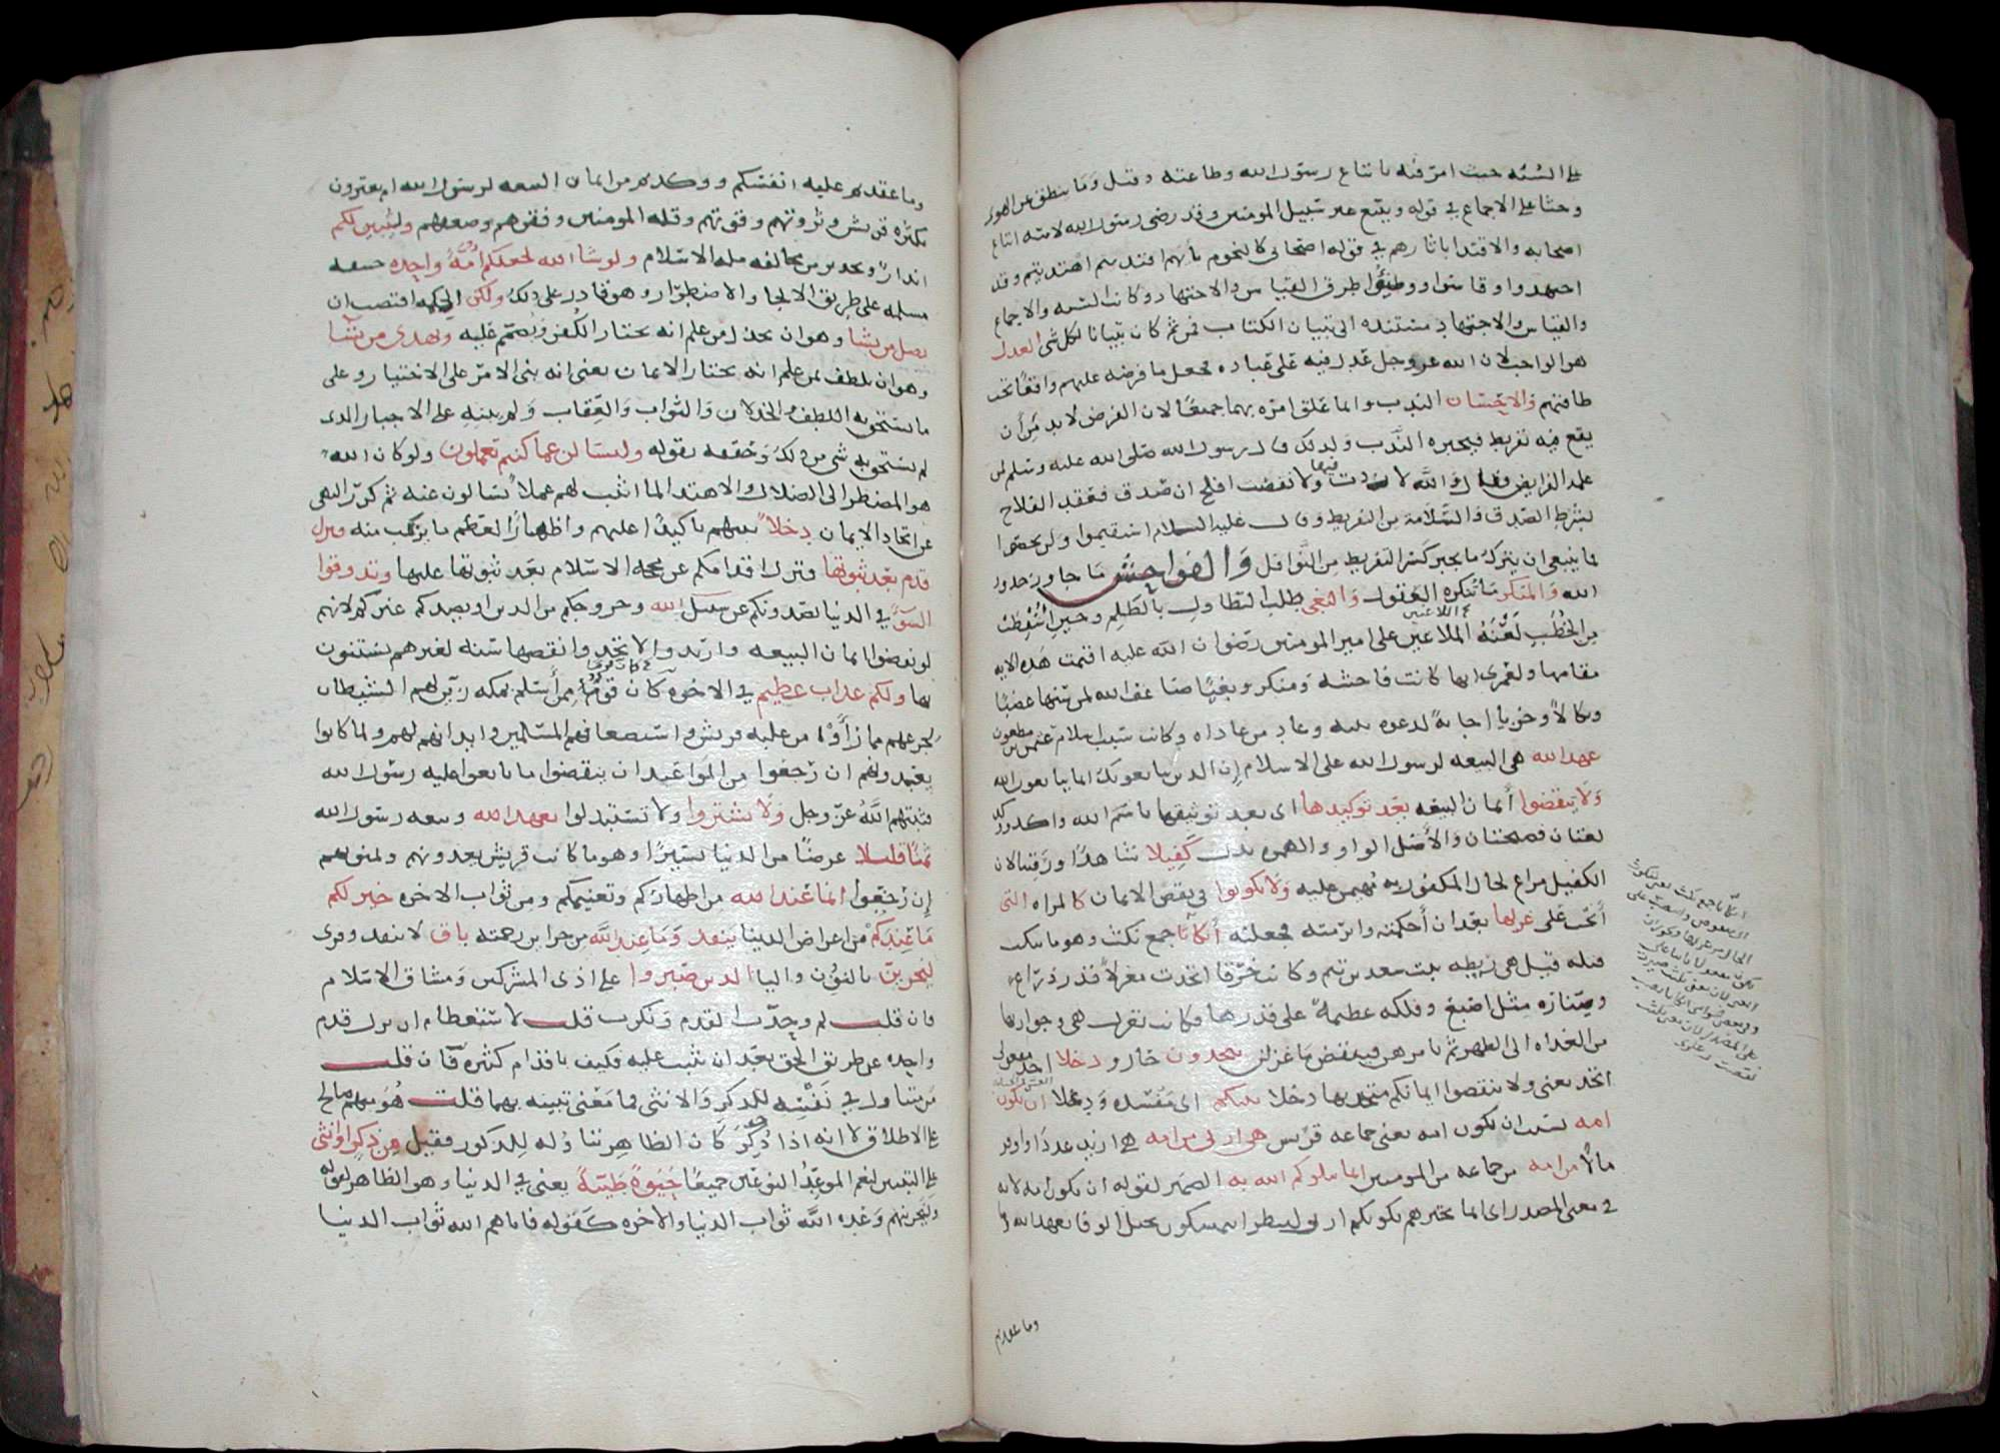 على السُّنَّه حيث امر فيه باتباع رسول الله وطاعته وقيل وَمَا ينطق عن الهوى
وحثا على الاجماع في قوله ويتبع غير سَبيل المومنين وقد رضى رسول الله لامته اتباع
اصحابه والاقتدا باثارهم في قوله اصحابى كالنجوم بأيهم اقتديتم اهتديتم وقد
اجتهدوا وقاسوا ووطئوا طرق القياس والاجتهاد وكانت السنه والاجماع
والقياس والاجتهاد مستنده الى تبيان الكتاب فمن ثم كان تبيانا لكل شى العدل
هو الواجب لان الله عز وجل عَدل فيه على عباده فجعل ما فرضه عليهم واقعًا تحت
طاقتهم والاحْسَان الندب وانما علق امره بهما جميعًا لان الفرض لا بد مِن أن
يقع فيه تفريط فيجبره النَّدب وَلذلك قال رسول الله صَلى الله عليه وسَلم لمن
علمه الفرايض فقال وَاللَّه لا زدت فيها ولا نقصت افلح ان صَدق فعقد الفلاح
بشرط الصّدق وَالسَّلامة من التفريط وقال عَليه السلام استقيموا ولن تحصوا
فما ينبغى ان يترك ما يجبر كسر التفريط مِن النَّوافل وَالفواحِش مَا جاوز حدود
الله وَالمنكر مَا تُنكره العقول وَالبغى طلب التطاول بالظلم وحين اُسْقِطت
من الخُطَبِ لَعْنَةُ الملاعين على امير المومنين رضوان الله عليه اقيمت هَذه الايه
مقامها ولعَمرى انها كانت فاحشة ومنكرو وبغيًا ضاعف الله لمن سَنّها غضبًا
ونكالًا وخزيا إجابةً لدعوه نبيه وعادِ من عاداه وكانت سَبب اسلام عثمن بن مظعون
عهد الله هى البيعه لرسول الله على الاسلام إن الذين يبايعونك انما يبايعون الله
وَلا تنقضوا أيمان البيعَه بعَد توكيدها اى بعد توثيقها باسم الله واكد ووكد
لغتان فصيحتان والأصْل الواو والهمزه بدل كَفيلا شاهدًا ورَقيبا لان
الكفيل مراع لحال المكفول به مهيمن عليه وَلا تكونوا فى نقض الايمان كالمراه التى
أنحت على غزلها بعَد ان أحكمته وابرمته فجعلته أنكاثًا جمع نكث وهو ما ينكث
فتله قيل هى ريطه بنت سعد بن تيم وكانت خَرْقا اتخذت مغزلًا قدر ذراع
وصِنّاره مثل اصْبَع وفلكه عظيمةً على قدرها فكانت تغزل هى وجواريها
من الغداه الى الظهر ثم تامرهن فينقضن مَا غزلن تتخذون حَال ودخلا احد مفعولى
اتخذ يعنى ولا تنقضوا ايمانكم متخذيها دخلا بينكم اى مَفْسَده وَدغلا ان تكون
امه بسَبب ان تكون امه يعنى جماعه قريش هى اربى من امه هى ازيد عددًا واوفر
مالًا من امه من جماعه من المومنين انما يبلوكم الله به الضمير لقوله ان تكون امه لانه
فى معنى المصدر اى انما يختبرهم بكونكم اربى لينظر اتتمسكون بحبل الوفا بعهد الله وما
وما عقدتم
وما عقدتم عليه انفسكم ووكدتم من ايمان البيعه لرسول الله ام تغترون
بكثره قريش وثروتهم وقوتهم وقله المومنين وفقرهم وضعفهم وليبَينن لكم
انذارٌ وتحذير من مخالفه مله الاسلام ولو شا الله لجعلكم أمَّةً واحِده حنيفه
مسلمه على طريق الالجا والاضطرار وهو قادر على ذلك ولكن الحكمه اقتضت ان
يضل من يشا وهو ان يخذل من علم انه يختار الكُفر وَيصمّم عليه ويهدى من يشا
وهو ان يلطف بمن علم انه يختار الايمان يعنى انه بنى الامر على الاختيار وعلى
ما يستحق به اللطف والخذلان وَالثواب وَالعِقاب وَلم يبنه على الاجبار الذى
لم يستحق به شى من ذلك وَحققه بقوله ولتسَالن عما كنتم تعملون ولو كان الله
هو المضطر الى الضلال والاهتدا لما اثبت لهم عملًا يُسَالون عنه ثم كرّر النهى
عن اتخاذ الايمان دخلًا بينهم تاكيدًا عليهم واظهارًا لعظم ما يركب منه فتزل
قدم بعَد ثبوتها فتزل اقدامكم عن محجه الاسْلام بعَد ثبوتها عليها وتذوقوا
السّوَّ في الدنيا بصَدودكم عن سَبيل الله وخروجكم من الدين او بصدكم غيركم لانهم
لو نقضوا ايمان البيعه وارتدوا لاتخذوا نقضها سُنّه لغيرهم يستنون
بها ولكم عذاب عظيم في الاخره كأنَّ قومًا مِمن أسلم بمكه زيّن لهم الشيطان
لجزعهم مما رأَوْا من غلبه قريش واستضعافهم المسلمين وايذائهم لهم ولما كانوا
يعِدونهم ان رجَعوا مِن المواعَيد ان ينقضوا ما بايعوا عليه رسُول الله
فثبتهم اللَّهُ عز وجل وَلا تشتروا ولا تسْتبدلوا بعَهد الله وبيعه رسُول الله
ثَمنًا قليلا عرضًا من الدنيا يسَيرًا وهو ما كانت قريش يعدونهم ولمنونهم
إن رَجَعوا انما عَند الله من اظهاركم وتغنيمكم ومن ثواب الاخره خير لكم
مَا عَندكم من اعراض الدينا ينفد وَمَا عِند اللَّه من خزاين رحمته باق لا ينفد وقرى
لنجزينّ بالنون واليا الذين صَبروا على اذى المشركين وَمشاق الاسْلام
فان قلت لم وحِدّت القدم وَنكرت قلت لاسْتعظام ان تزل قدم
واحِده عن طريق الحق بعَد ان ثبتت عليه فكيف باقدام كثيره فان قلت
مَن متناول في نَفْسِه للذكرِ وَالانثى فما مَعْنى تبيينه بهما قلت هُوَ مبهم صالح
على الاطلاق لانه اذا ذُكِرَ كَان الظاهر تناوُله للذكور فقيل مِن ذكر او انثى
على التبيين ليعم الموعِدُ النوعَين جميعًا حَيٰوةً طَيّبةً يعنى في الدنيا وهو الظاهر لقوله
ولنَجزينهم وَعَده اللَّه ثواب الدنيا والاخره كَقوله فاتاهم الله ثواب الدنيا